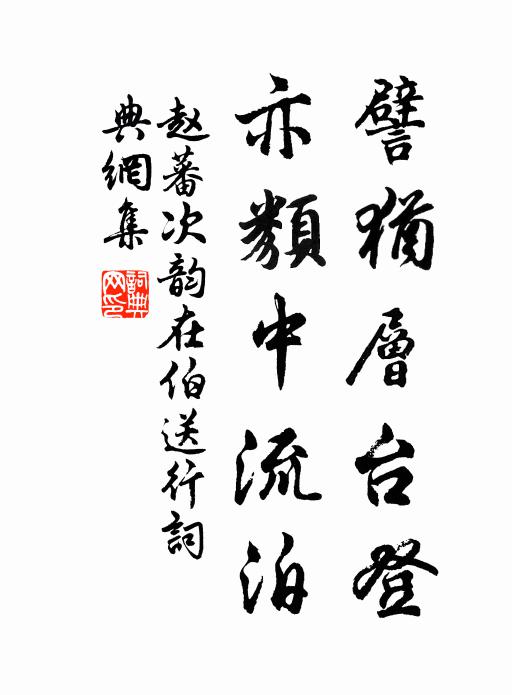 譬猶層台登
亦類中流泊
赵蕃次韵在伯送行詞
典網集
詞典
网印